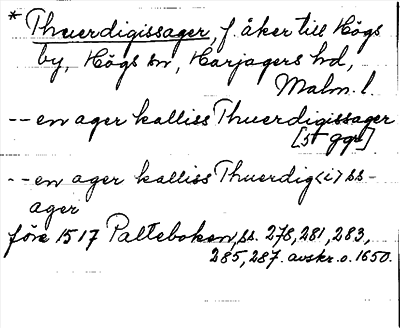 * Thuerdigissager, f. åker till Högs
by, Högs sn, Harjagers hd,
Malm. l.
-- en ager kalliss Thuerdigissager
[5 ggr]
-- en ager kalliss Thuerdig<i>ss-
ager
före 1517 Palteboken, ss. 278, 281, 283,
285, 287. avskr. o. 1650.